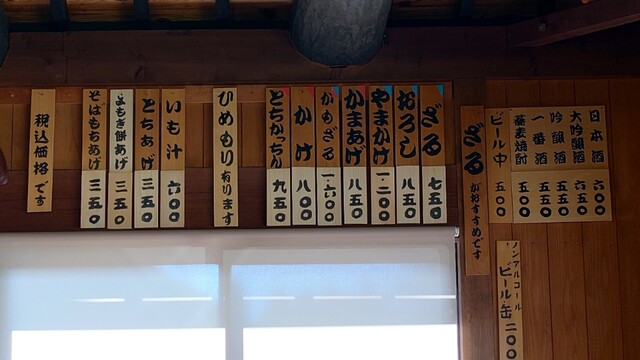 日本酒 六〇〇
大吟醸酒 六五〇
吟醸酒 五五〇
一番酒 五五〇
蕎麦焼酎 五五〇
ビール中 五〇〇
ノンアルコール
ビール缶 二〇〇
ざるがおすすめです
ざる 七五〇
おろし 八五〇
やまかけ 一、二〇〇
かまあげ 八五〇
かもざる 一、六〇〇
かけ 八〇〇
とちかっちん 九五〇
ひめもり有ります
いも汁 六〇〇
とちあげ 三五〇
よもぎ餅あげ 三五〇
そばもちあげ 三五〇
税込価格です